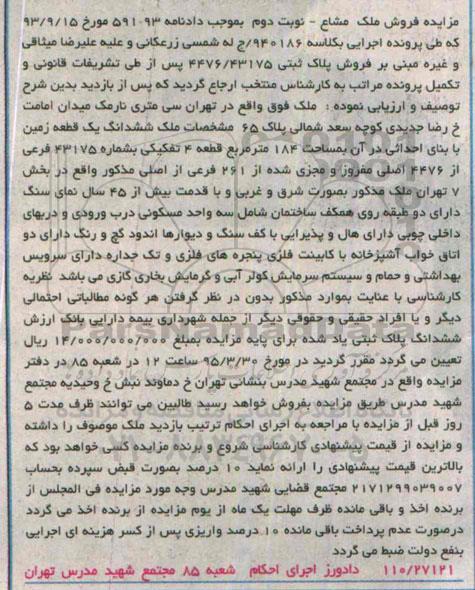 مزایده فروش ملک مشاع - نوبت دوم بموجب دادنامه 93 591 مورخ 93/9/15
که طی پرونده اجرایی بکلاسه 940186/ج له شمسی زرعکانی و علیه علیرضا میثاقی
و غیره مبنی بر فروش پلاک ثبتی 4476/43175 پس از طی تشریفات قانونی و
تکمیل پرونده مراتب به کارشناس منتخب ارجاع گردید که پس از بازدید بدین شرح
توصیف و ارزیابی نموده : ملک فوق واقع در تهران سی متری نارمک میدان امامت
خ رضا جدیدی کوچه سعد شمالی پلاک 65 مشخصات ملک ششدانگ یک قطعه زمین
با بنای احداثی در آن بمساحت 184 مترمربع قطعه 4 تفکیکی بشماره 43175 فرعی
از 4476 اصلی مفروز و مجزی شده از 261 فرعی از اصلی مذکور واقع در بخش
7 تهران ملک مذکور بصورت شرق و غربی و با قدمت بیش از 45 سال نمای سنگ
دارای دو طبقه روی همکف ساختمان شامل سه واحد مسکونی درب ورودی و دربهای
داخلی چوبی دارای هال و پذیرایی با کف سنگ و دیوارها اندود گچ و رنگ دارای دو
اتاق خواب آشپزخانه با کابینت فلزی پنجره های فلزی و تک جداره دارای سرویس
بهداشتی و حمام و سیستم سرمایش کولر آبی و گرمایش بخاری گازی می باشد نظریه
کارشناسی با عنایت بموارد مذکور بدون در نظر گرفتن هر گونه مطالباتی احتمالی
دیگر و یا افراد حقیقی و حقوقی دیگر از جمله شهرداری بیمه دارایی بانک ارزش
ششدانگ پلاک ثبتی یاد شده برای پایه مزایده بمبلغ 14/000/000/000 ریال
تعیین می گردد مقرر گردید در مورخ 95/3/30 ساعت 12 در شعبه 85 در دفتر
مزایده واقع در مجتمع شهید مدرس بنشانی تهران خ دماوند نبش خ وحیدیه مجتمع
شهید مدرس طریق مزایده بفروش خواهد رسید طالبین می توانند ظرف مدت 5
روز قبل از مزایده با مراجعه به اجرای احکام ترتیب بازدید ملک موصوف را داشته
و مزایده از قیمت پیشنهادی کارشناسی شروع و برنده مزایده کسی خواهد بود که
بالاترین قیمت پیشنهادی را ارائه نماید 10 درصد بصورت قبض سپرده بحساب
2171299039007 مجتمع قضایی شهید مدرس وجه مورد مزایده فی المجلس از
برنده اخذ و باقی مانده ظرف مهلت یک ماه از یوم مزایده از برنده اخذ می گردد
درصورت عدم پرداخت باقی مانده 10 درصد واریزی پس از کسر هزینه ای اجرایی
بنفع دولت ضبط می گردد
110/27121 دادورز اجرای احکام شعبه 85 مجتمع شهید مدرس تهران